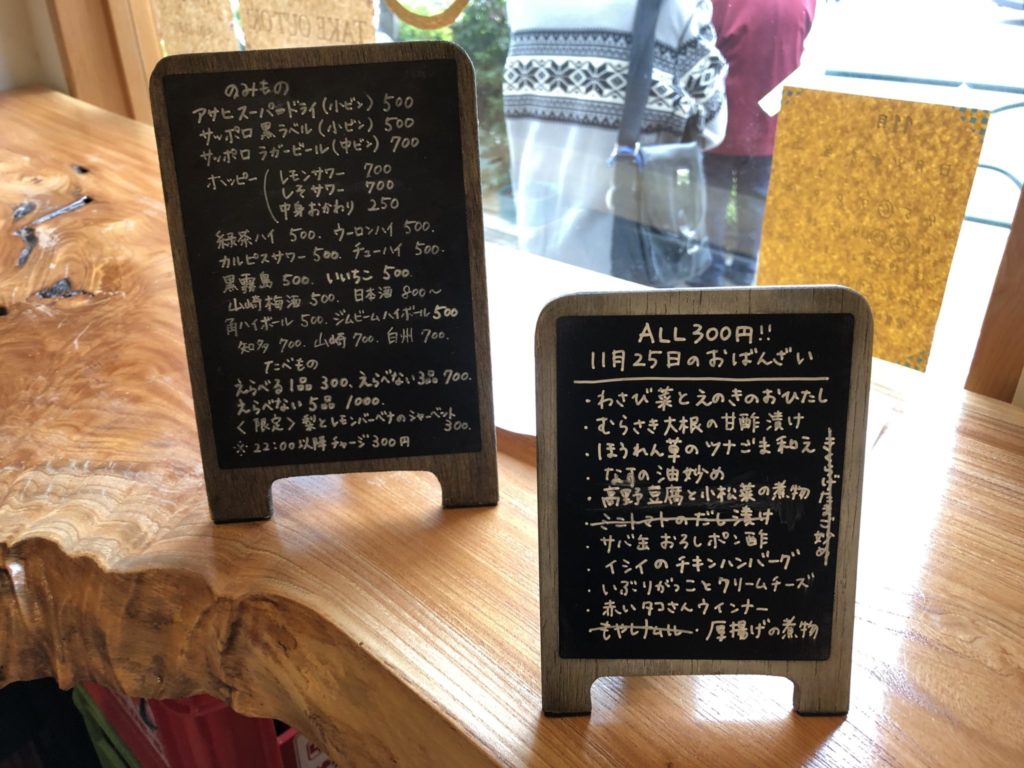 TAKE OUT OK
のみもの
アサヒ スーパードライ(小ビン) 500
サッポロ 黒ラベル(小ビン) 500
サッポロ ラガービール(中ビン) 700
ホッピー レモンサワー 700
しそサワー 700
中身おかわり 250
緑茶ハイ 500. ウーロンハイ 500.
カルピスサワー 500. チューハイ 500.
黒霧島 500. いいちこ 500.
山崎梅酒 500. 日本酒 800〜
角ハイボール 500. ジムビームハイボール 500
知多 700. 山崎 700. 白州 700.
たべもの
えらべる1品 300、えらべない3品 700.
えらべない5品 1000.
〈限定〉梨とレモンバーベナのシャーベット
300.
※22:00以降チャージ300円
ALL 300円!!
11月25日のおばんざい
・わさび菜とえのきのおひたし
・むらさき大根の甘酢漬け
・ほうれん草のツナごま和え
・なすの油炒め
・高野豆腐と小松菜の煮物
・ミニトマトのだし漬け
・サバ缶おろしポン酢
・イシイのチキンハンバーグ
・いぶりがっことクリームチーズ
・赤いタコさんウインナー
・もやしナムル ・厚揚げの煮物
11月